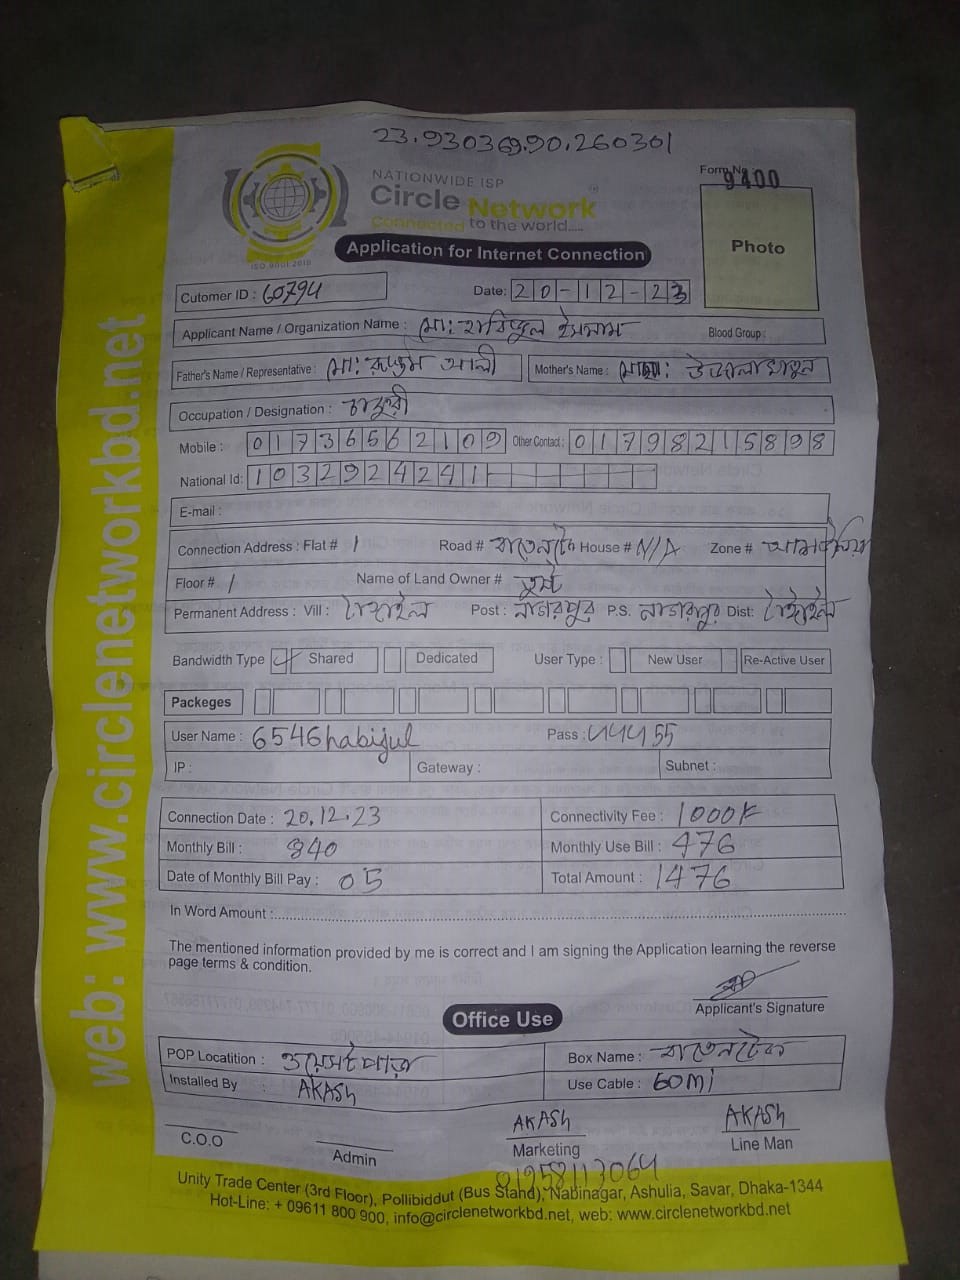 23.930369,90.260301
NATIONWIDE ISP
Circle Network
Connected to the world.....
ISO 9001:2015
Form No : 9400
Photo
Application for Internet Connection
Cutomer ID : 60794
Date: 20-12-23
Applicant Name / Organization Name : মো: হাবিজুল ইসলাম Blood Group:
Father's Name / Representative : মো: রুস্তম আলী Mother's Name : মোছা: উজালা খাতুন
Occupation / Designation : চাকুরী
Mobile : 01736562109 Other Contact : 01798215898
National Id: 1032924241
E-mail :
Connection Address : Flat # 1 Road # House # N/A Zone #
Floor # 1 Name of Land Owner #
Permanent Address : Vill : টাঙ্গাইল Post : নাগরপুর P.S. নাগরপুর Dist: টাঙ্গাইল
Bandwidth Type Shared Dedicated User Type : New User Re-Active User
Packeges
User Name : 6546habijul Pass : 44455
IP : Gateway : Subnet :
Connection Date : 20.12.23 Connectivity Fee : 1000৳
Monthly Bill : 840 Monthly Use Bill : 476
Date of Monthly Bill Pay : 05 Total Amount : 1476
In Word Amount :
The mentioned information provided by me is correct and I am signing the Application learning the reverse
page terms & condition.
Applicant's Signature
Office Use
POP Locatition : Box Name :
Installed By : AKASH Use Cable : 60mi
C.O.O
Admin
AKASH
Marketing
AKASH
Line Man
01958113064
Unity Trade Center (3rd Floor), Pollibiddut (Bus Stand), Nabinagar, Ashulia, Savar, Dhaka-1344
Hot-Line: + 09611 800 900, info@circlenetworkbd.net, web: www.circlenetworkbd.net
web: www.circlenetworkbd.net